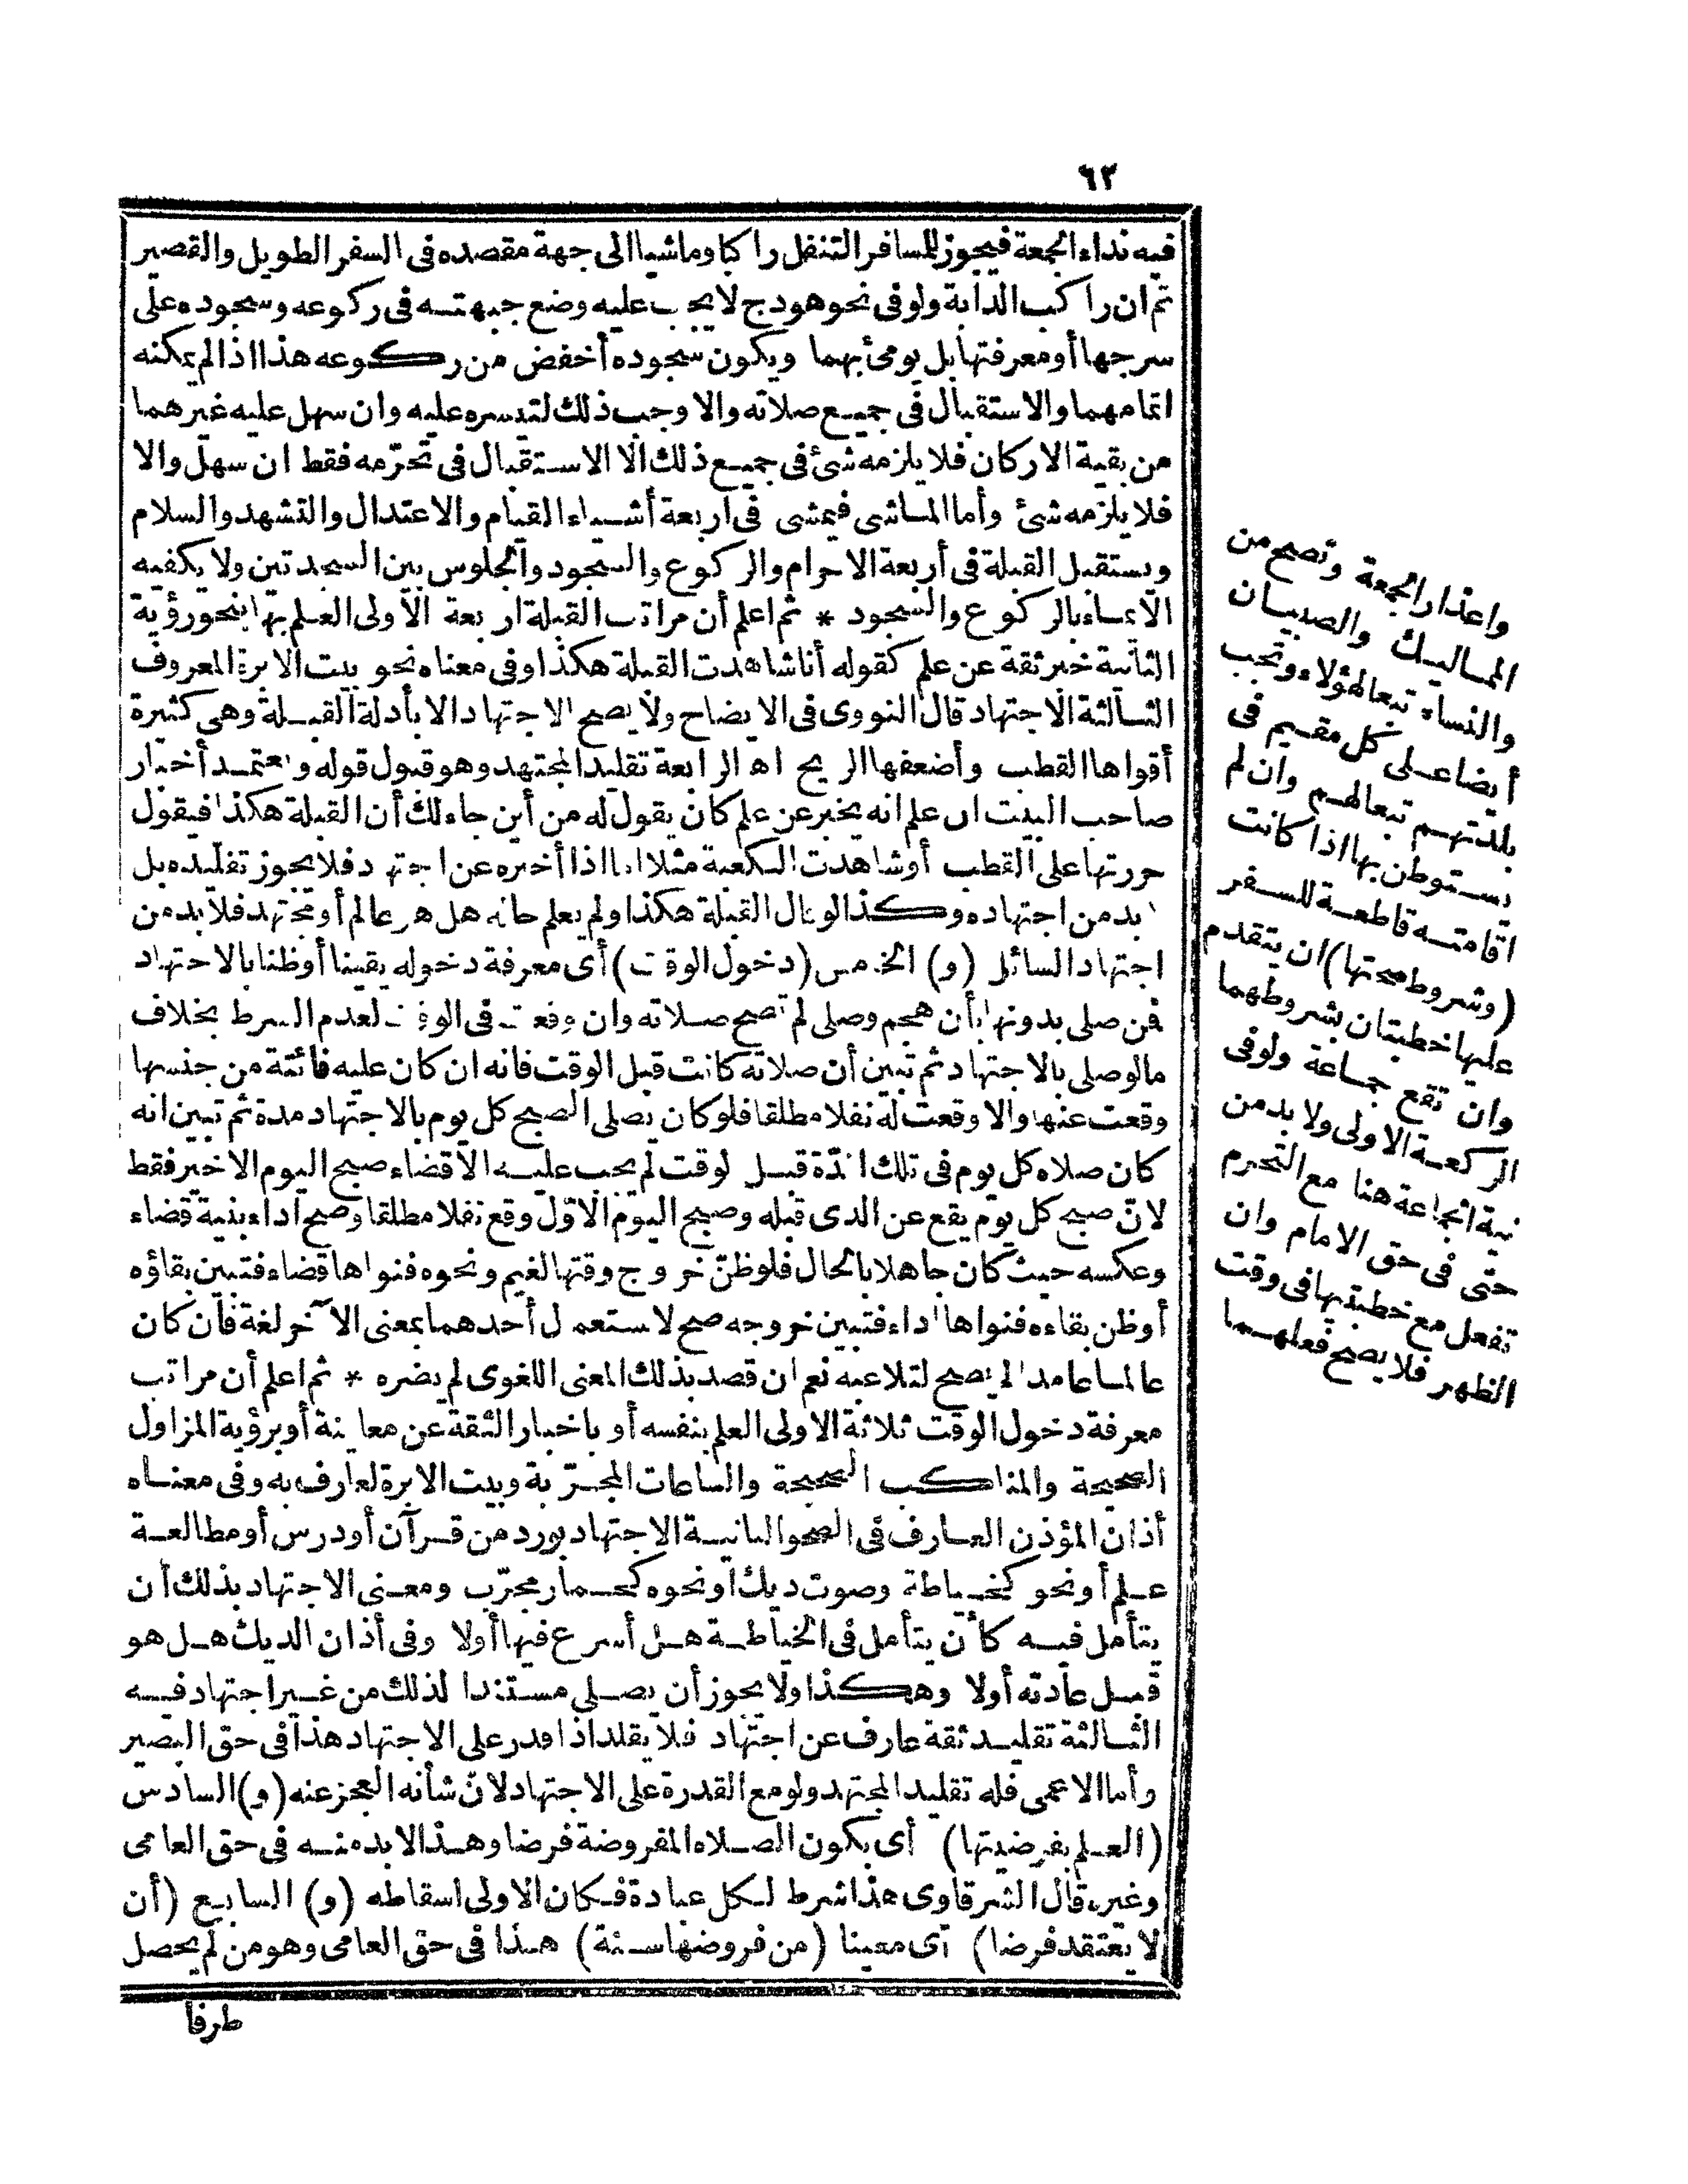 ٦٣
فيه نداء الجمعة فيجوز للمسافر التنفل راكبا وماشيا الى جهة مقصده فى السفر الطويل والقصير
ثم ان راكب الدابة ولو فى نحو هودج لا يجب عليه وضع جبهته فى ركوعه وسجوده على
سرجها أو معرفتها بل يومئ بهما ويكون سجوده أخفض من ركوعه هذا اذا لم يمكنه
اتمامهما والاستقبال فى جميع صلاته والا وجب ذلك لتيسره عليه وان سهل عليه غيرهما
من بقية الاركان فلا يلزمه شئ فى جميع ذلك الا الاستقبال فى تحرّمه فقط ان سهل والا
فلا يلزمه شئ وأما الماشى فيمشى فى أربعة أشياء القيام والاعتدال والتشهد والسلام
ويستقبل القبلة فى أربعة الاحرام والركوع والسجود والجلوس بين السجدتين ولا يكفيه
الايماء بالركوع والسجود * ثم اعلم أن مراتب القبلة اربعة الاولى العلم بها بنحو رؤية
الثانية خبر ثقة عن علم كقوله أنا شاهدت القبلة هكذا وفى معناه نحو بيت الابرة المعروف
الثالثة الاجتهاد قال النووى فى الايضاح ولا يصح الاجتهاد الا بأدلة القبلة وهى كثيرة
أقواها القطب وأضعفها الريح اه الرابعة تقليد المجتهد وهو قبول قوله ويعتمد أخبار
صاحب البيت ان علم انه يخبر عن علم كان يقول له من أين جاء لك أن القبلة هكذا فيقول
حررتها على القطب أو شاهدت الكعبة مثلا اما اذا أخبره عن اجتهاد فلا يجوز تقليده بل
لا بد من اجتهاده وكذا لو قال القبلة هكذا ولم يعلم حاله هل هو عالم أو مجتهد فلا بد من
اجتهاد السائل (و) الخامس (دخول الوقت) أى معرفة دخوله يقينا أو ظنا بالاجتهاد
فمن صلى بدونها بأن هجم وصلى لم تصح صلاته وان وقعت فى الوقت لعدم الشرط بخلاف
ما لو صلى بالاجتهاد ثم تبين أن صلاته كانت قبل الوقت فانه ان كان عليه فائتة من جنسها
وقعت عنها والا وقعت له نفلا مطلقا فلو كان يصلى الصبح كل يوم بالاجتهاد مدة ثم تبين انه
كان صلاه كل يوم فى تلك المدّة قبل الوقت لم يجب عليه الا قضاء صبح اليوم الاخير فقط
لانّ صبح كل يوم يقع عن الذى قبله وصبح اليوم الاوّل وقع نفلا مطلقا وصح أداء بنية قضاء
وعكسه حيث كان جاهلا بالحال فلو ظنّ خروج وقتها لغيم ونحوه فنواها قضاء فتبين بقاؤه
أو ظن بقاءه فنواها اداء فتبين خروجه صح لاستعمال أحدهما بمعنى الآخر لغة فان كان
عالما عامدا لم يصح لتلاعبه نعم ان قصد بذلك المعنى اللغوى لم يضره * ثم اعلم أن مراتب
معرفة دخول الوقت ثلاثة الاولى العلم بنفسه أو باخبار الثقة عن معاينة أو برؤية المزاول
الصحيحة والمناكب الصحيحة والساعات المجرّبة وبيت الابرة لعارف به وفى معناه
أذان المؤذن العارف فى الصحو الثانية الاجتهاد بورد من قرآن أو درس أو مطالعة
علم أو نحو كخياطة وصوت ديك أو نحوه كحمار مجرّب ومعنى الاجتهاد بذلك أن
يتأمل فيه كأن يتأمل فى الخياطة هل أسرع فيها أولا وفى أذان الديك هل هو
قبل عادته أولا وهكذا ولا يجوز أن يصلى مستندا لذلك من غير اجتهاد فيه
الثالثة تقليد ثقة عارف عن اجتهاد فلا يقلد اذا قدر على الاجتهاد هذا فى حق البصير
وأما الاعمى فله تقليد المجتهد ولو مع القدرة على الاجتهاد لانّ شأنه العجز عنه (و) السادس
(العلم بفرضيتها) أى بكون الصلاه المفروضة فرضا وهذا لا بد منه فى حق العامى
وغيره قال الشرقاوى هذا شرط لكل عبادة فكان الاولى اسقاطه (و) السابع (أن
لا يعتقد فرضا) أى معينا (من فروضها سنة) هذا فى حق العامى وهو من لم يحصل
طرفا
واعذار الجمعة وتصح من
المماليك والصبيان
والنساء تبعا لهؤلاء وتجب
أيضا على كل مقيم فى
بلدتهم تبعا لهم وان لم
يستوطن بها اذا كانت
اقامته قاطعة للسفر
(وشروط صحتها) ان يتقدم
عليها خطبتان بشروطهما
وان تقع جماعة ولو فى
الركعة الاولى ولا بد من
نية الجماعة هنا مع التحرم
حتى فى حق الامام وان
تفعل مع خطبتيها فى وقت
الظهر فلا يصح فعلهما